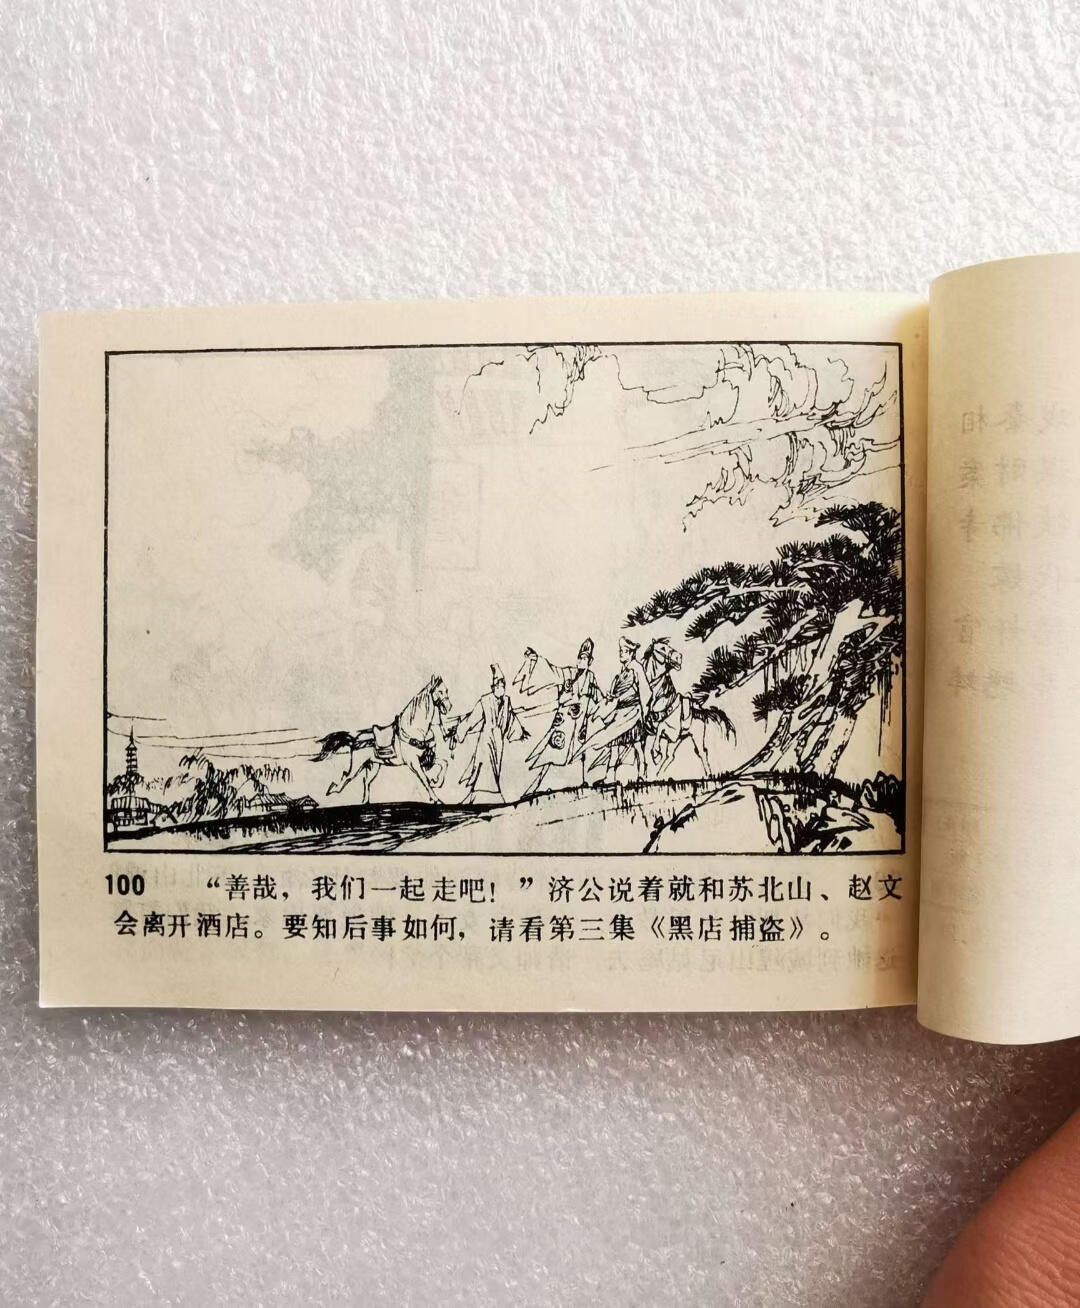 100 “善哉，我们一起走吧！”济公说着就和苏北山、赵文
会离开酒店。要知后事如何，请看第三集《黑店捕盗》。